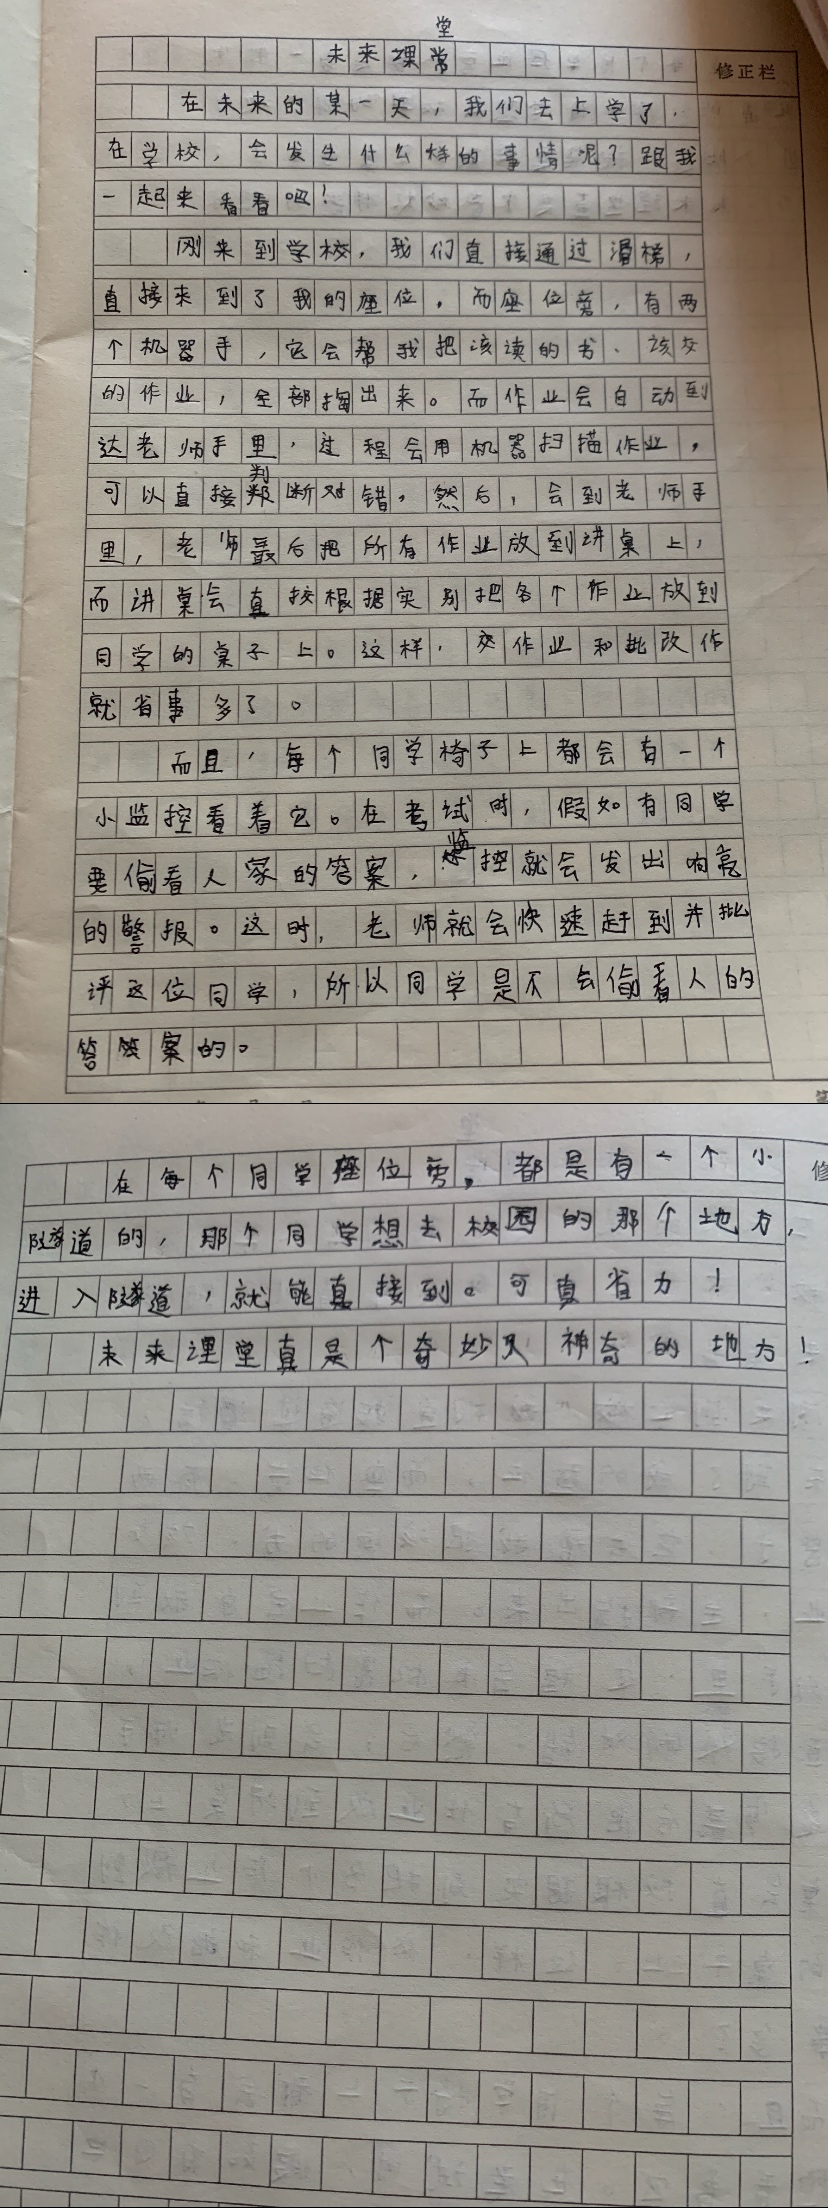 堂
未来课常
修正栏
在未来的某一天，我们去上学了，
在学校，会发生什么样的事情呢？跟我
一起来看看吧！
刚来到学校，我们直接通过滑梯，
直接来到了我的座位，而座位旁，有两
个机器手，它会帮我把该读的书、该交
的作业，全部掏出来。而作业会自动到
达老师手里，过程会用机器扫描作业，
判
可以直接断对错，然后，会到老师手
里，老师最后把所有作业放到讲桌上，
而讲桌会直按根据实别把各个作业放到
同学的桌子上。这样，交作业和批改作
就省事多了。
而且，每个同学椅子上都会有一个
小监控看着它。在考试时，假如有同学
监
要偷看人家的答案，控就会发出响亮
的警报。这时，老师就会快速赶到并批
评这位同学，所以同学是不会偷看人的
答案的。
在每个同学座位旁，都是有一个小
隧道的，那个同学想去校园的那个地方，
修
进入隧道，就能直接到。可真省力！
未来课堂真是个奇妙又神奇的地方！